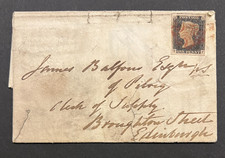 POSTAGE
James Balfour Esqre W.S
of Pilrig
Clerk of Supply
Broughton Street
Edinburgh